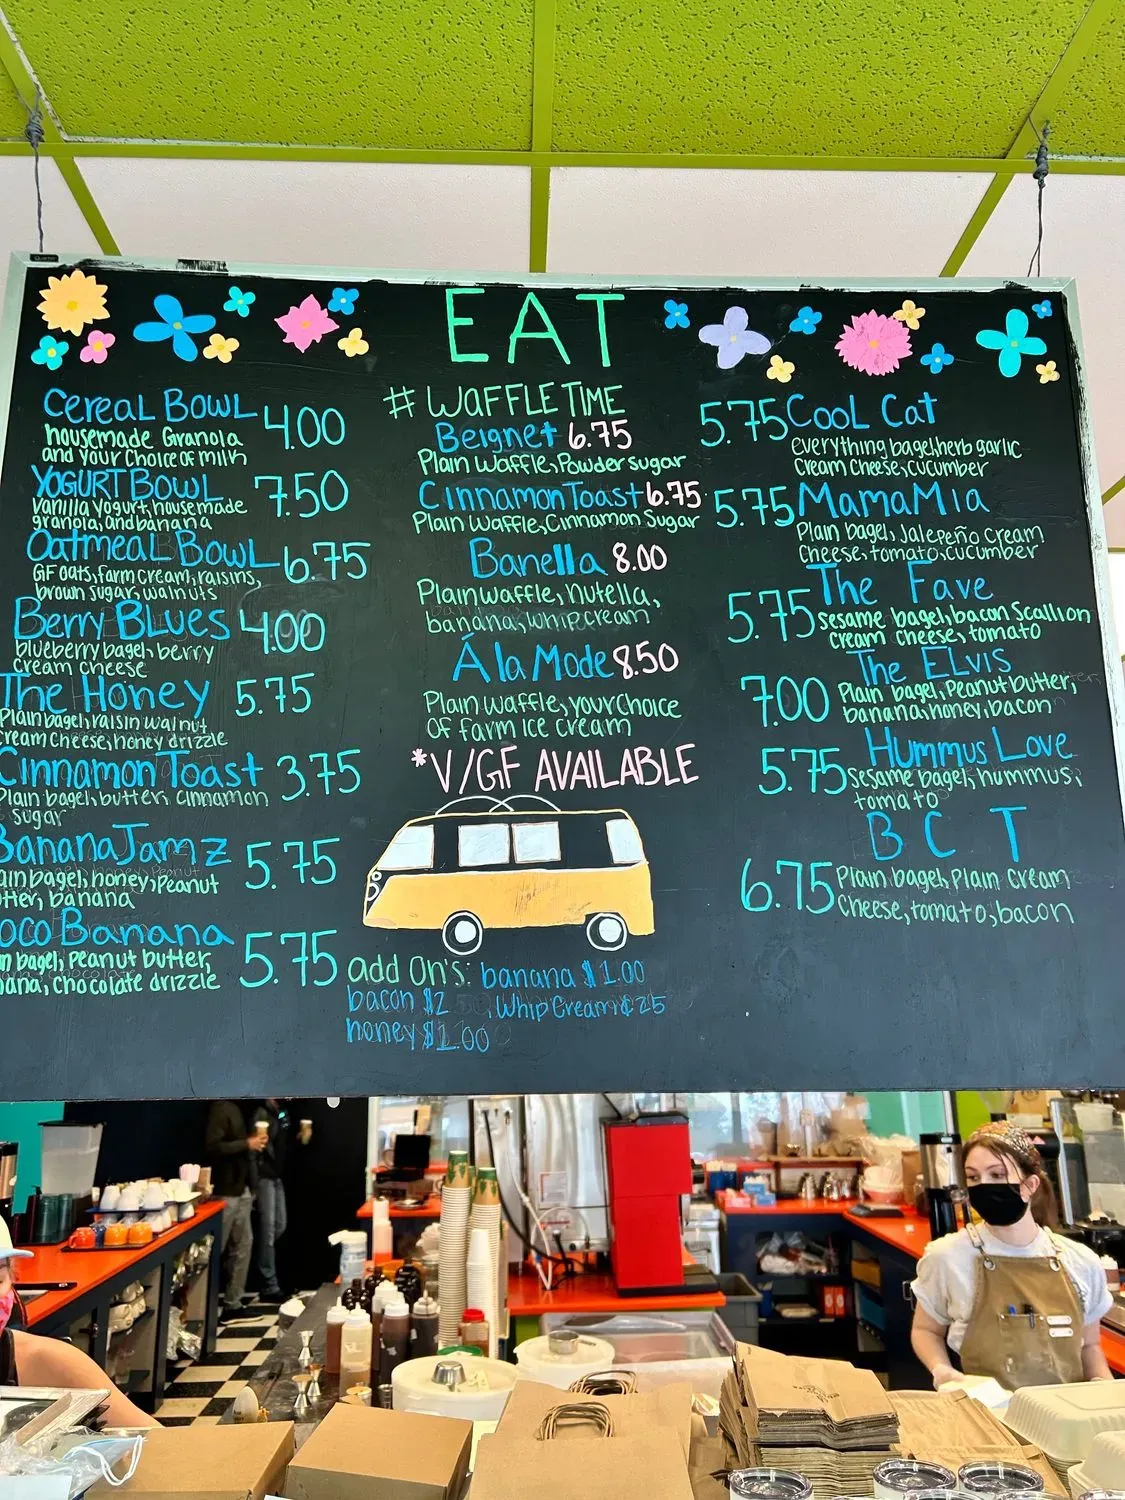 EAT
Cereal Bowl 4.00
housemade Granola
and your choice of milk
YOGURT BOWL 7.50
vanilla yogurt, housemade
granola, and banana
Oatmeal Bowl 6.75
GF oats, farm cream, raisins,
brown sugar, walnuts
Berry Blues 4.00
blueberry bagel, berry
cream cheese
The Honey 5.75
Plain bagel, raisin walnut
cream cheese, honey drizzle
Cinnamon Toast 3.75
Plain bagel, butter, cinnamon
sugar
Banana Jamz 5.75
ain bagel, honey, Peanut
tter, banana
oco Banana 5.75
n bagel, peanut butter,
ana, chocolate drizzle
# WAFFLE TIME
Beignet 6.75
Plain Waffle, Powder sugar
Cinnamon Toast 6.75
Plain Waffle, Cinnamon Sugar
Banella 8.00
Plain waffle, nutella,
banana, whip cream
Á la Mode 8.50
Plain waffle, your choice
of farm ice cream
*V/GF AVAILABLE
add On's: banana $1.00
bacon $2 Whip Cream ¢25
honey $1.00
5.75 Cool Cat
everything bagel, herb garlic
cream cheese, cucumber
5.75 Mama Mia
Plain bagel, Jalepeño cream
cheese, tomato, cucumber
The Fave
5.75 sesame bagel, bacon scallion
cream cheese, tomato
The ELvis
7.00 Plain bagel, Peanut butter,
banana, honey, bacon
Hummus Love
5.75 sesame bagel, hummus,
tomato
B C T
6.75 Plain bagel, Plain cream
cheese, tomato, bacon